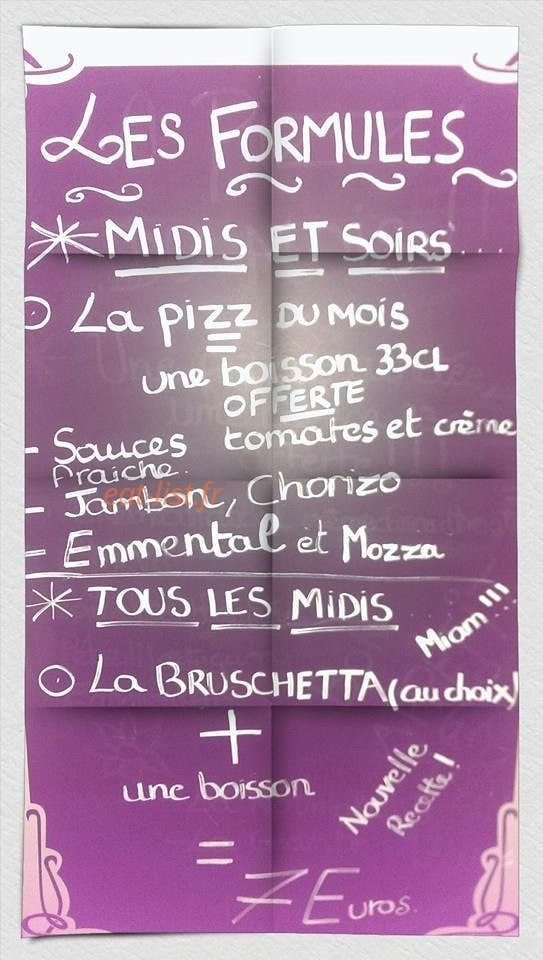 LES FORMULES
* MIDIS ET SOIRS....
O La pizz DU MOIS
une boisson 33CL
OFFERTE
- Sauces tomates et crème
fraiche.
- Jambon, Chorizo
eat-list.fr
- Emmental et Mozza
* TOUS LES MIDIS
Miam !!!
O La BRUSCHETTA (au choix)
+
une boisson
Nouvelle
Recette !
=
7 Euros.